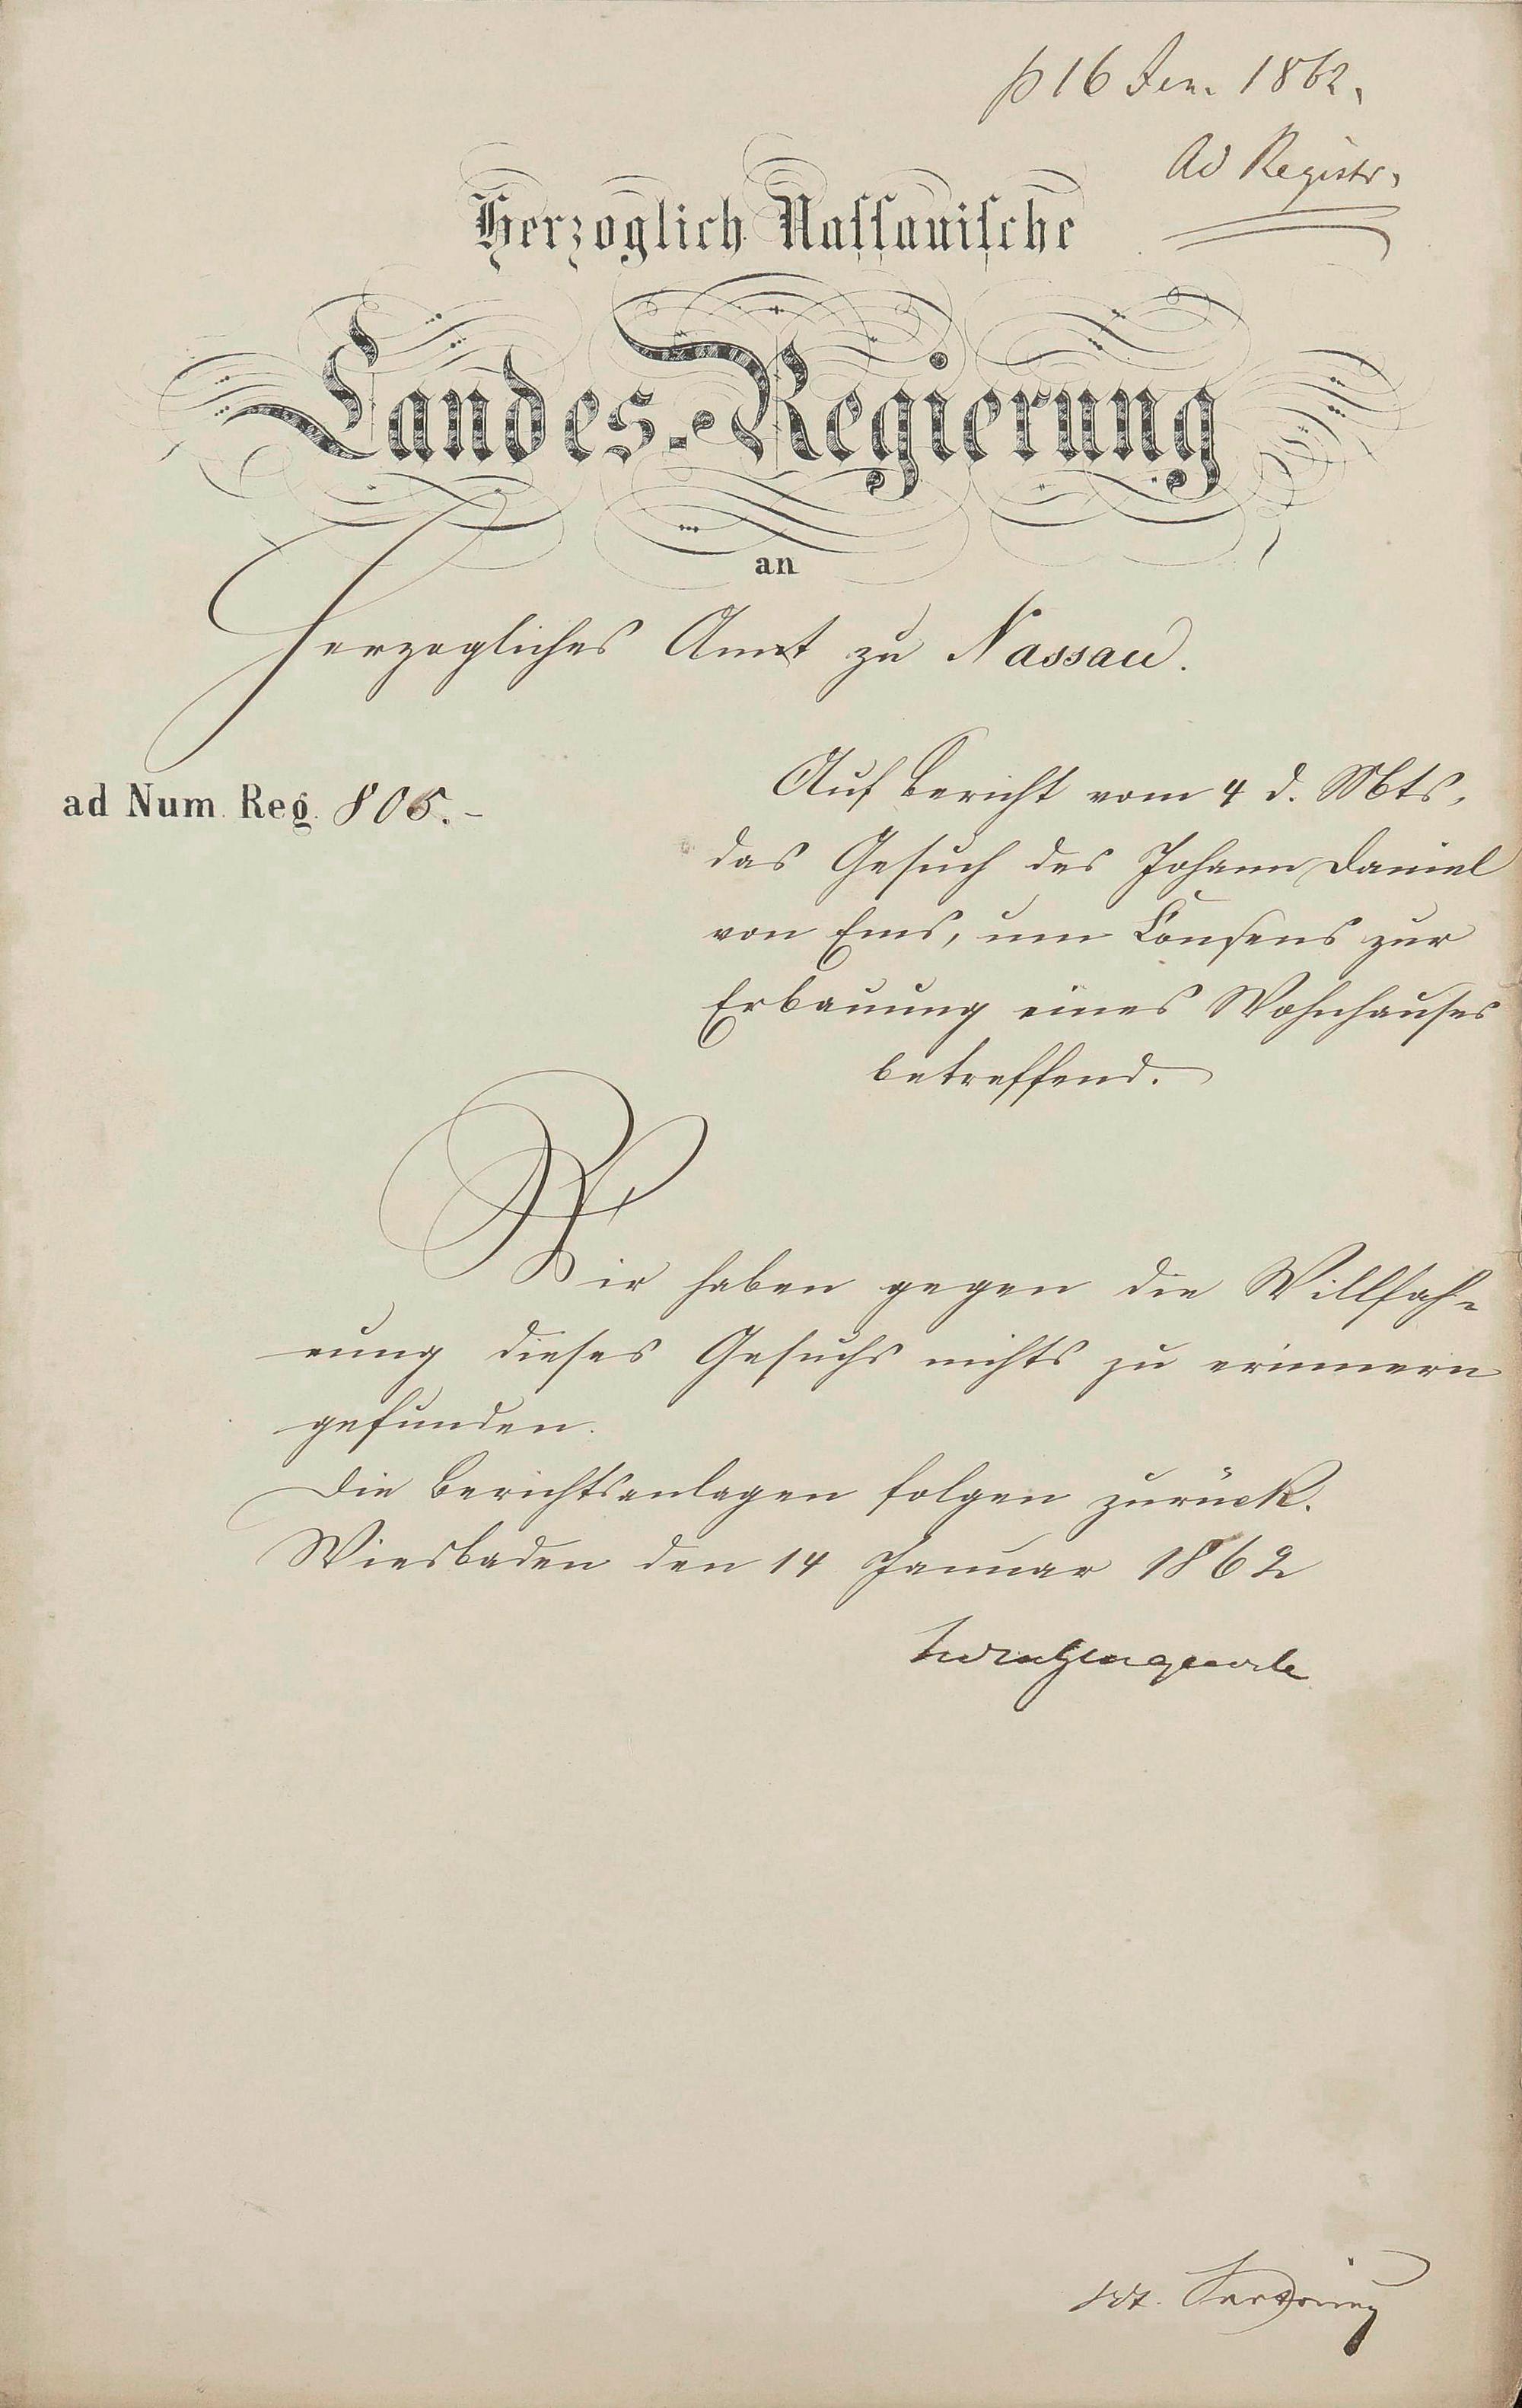 p 16 Jan. 1862.
Ad Registr.
Herzoglich Nassauische
Landes-Regierung
an
Herzogliches Amt zu Nassau.
ad Num. Reg. 805.-
Auf Bericht vom 4 d. Mts,
das Gesuch des Johann Daniel
von Ems, um Consens zur
Erbauung eines Wohnhauses
betreffend.
Wir haben gegen die Willfah-
rung dieses Gesuchs nichts zu erinnern
gefunden.
Die Berichtsanlagen folgen zurück.
Wiesbaden den 14 Januar 1862
vdt.